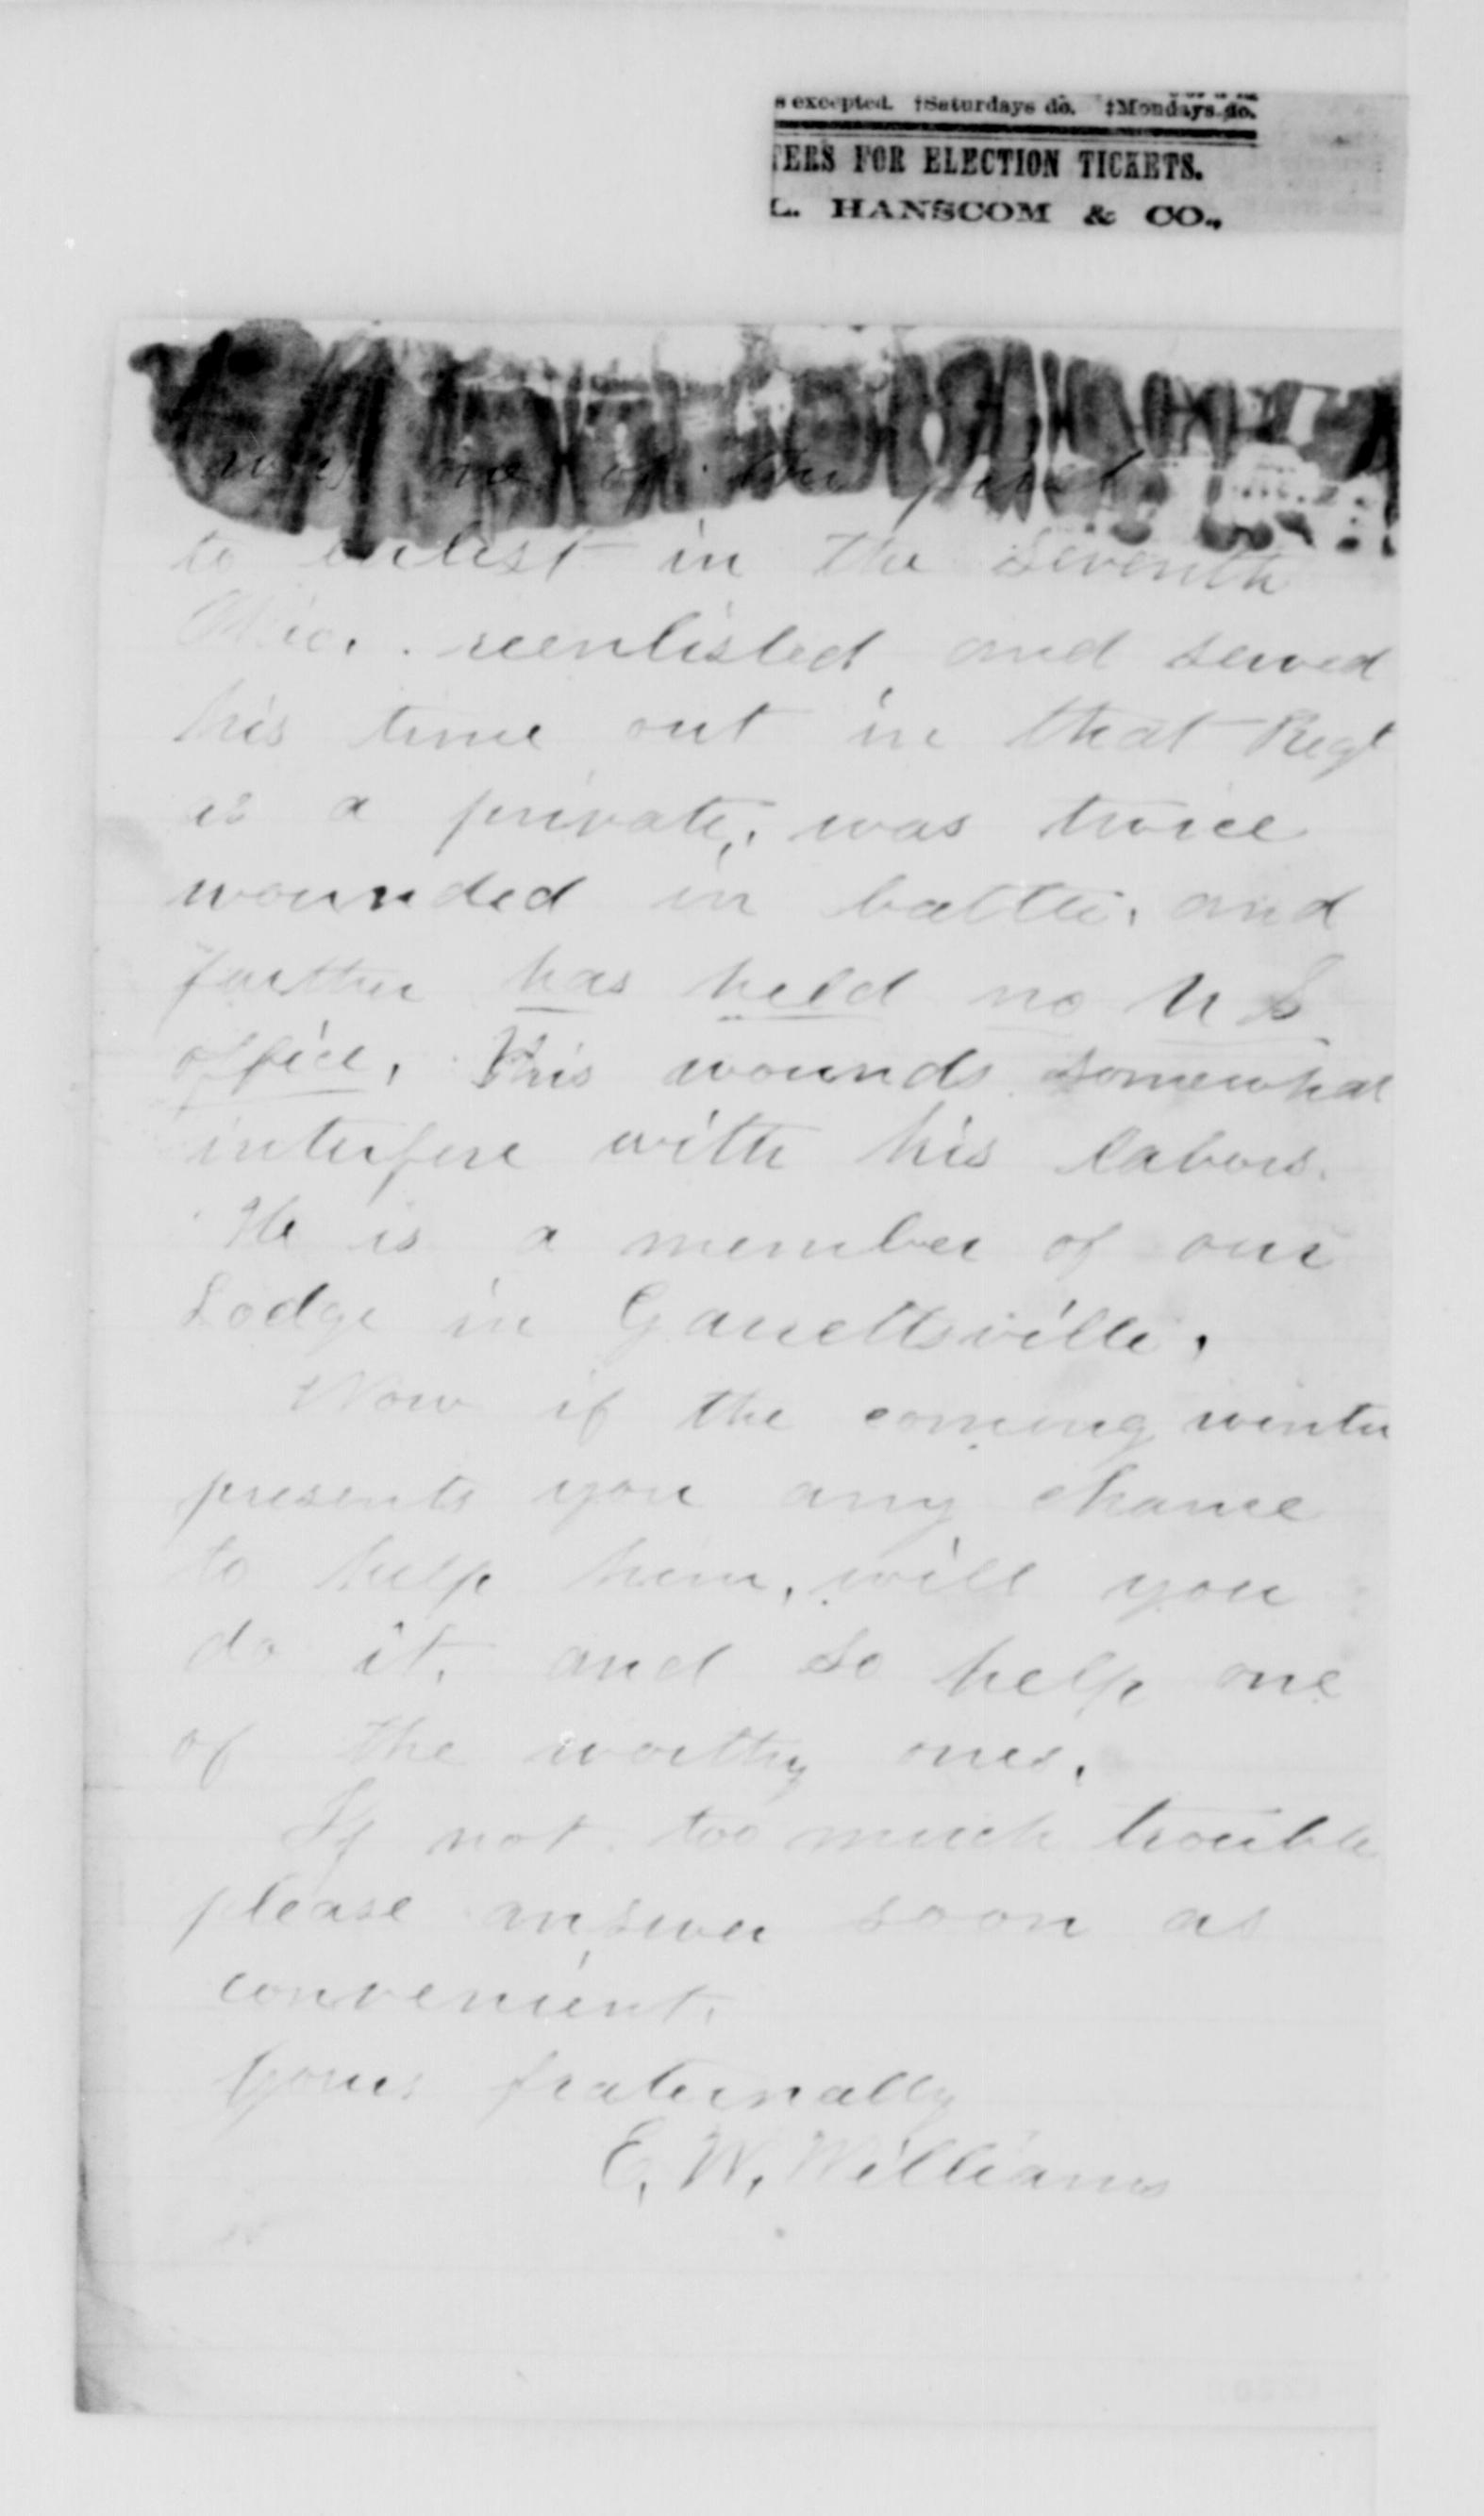 s excepted. †Saturdays do. ‡Mondays do.
TERS FOR ELECTION TICKETS.
L. HANSCOM & CO.,
was one of the first
to enlist in the Seventh
Ohio. reenlisted and served
his time out in that Regt
as a private, was twice
wounded in battle, and
further has held no U S
office, His wounds somewhat
interfere with his labors.
He is a member of our
Lodge in Garrettsville.
Now if the coming winter
presents you any chance
to help him, will you
do it, and so help one
of the worthy ones.
If not too much trouble
please answer soon as
convenient.
Yours fraternally
E. W. Williams